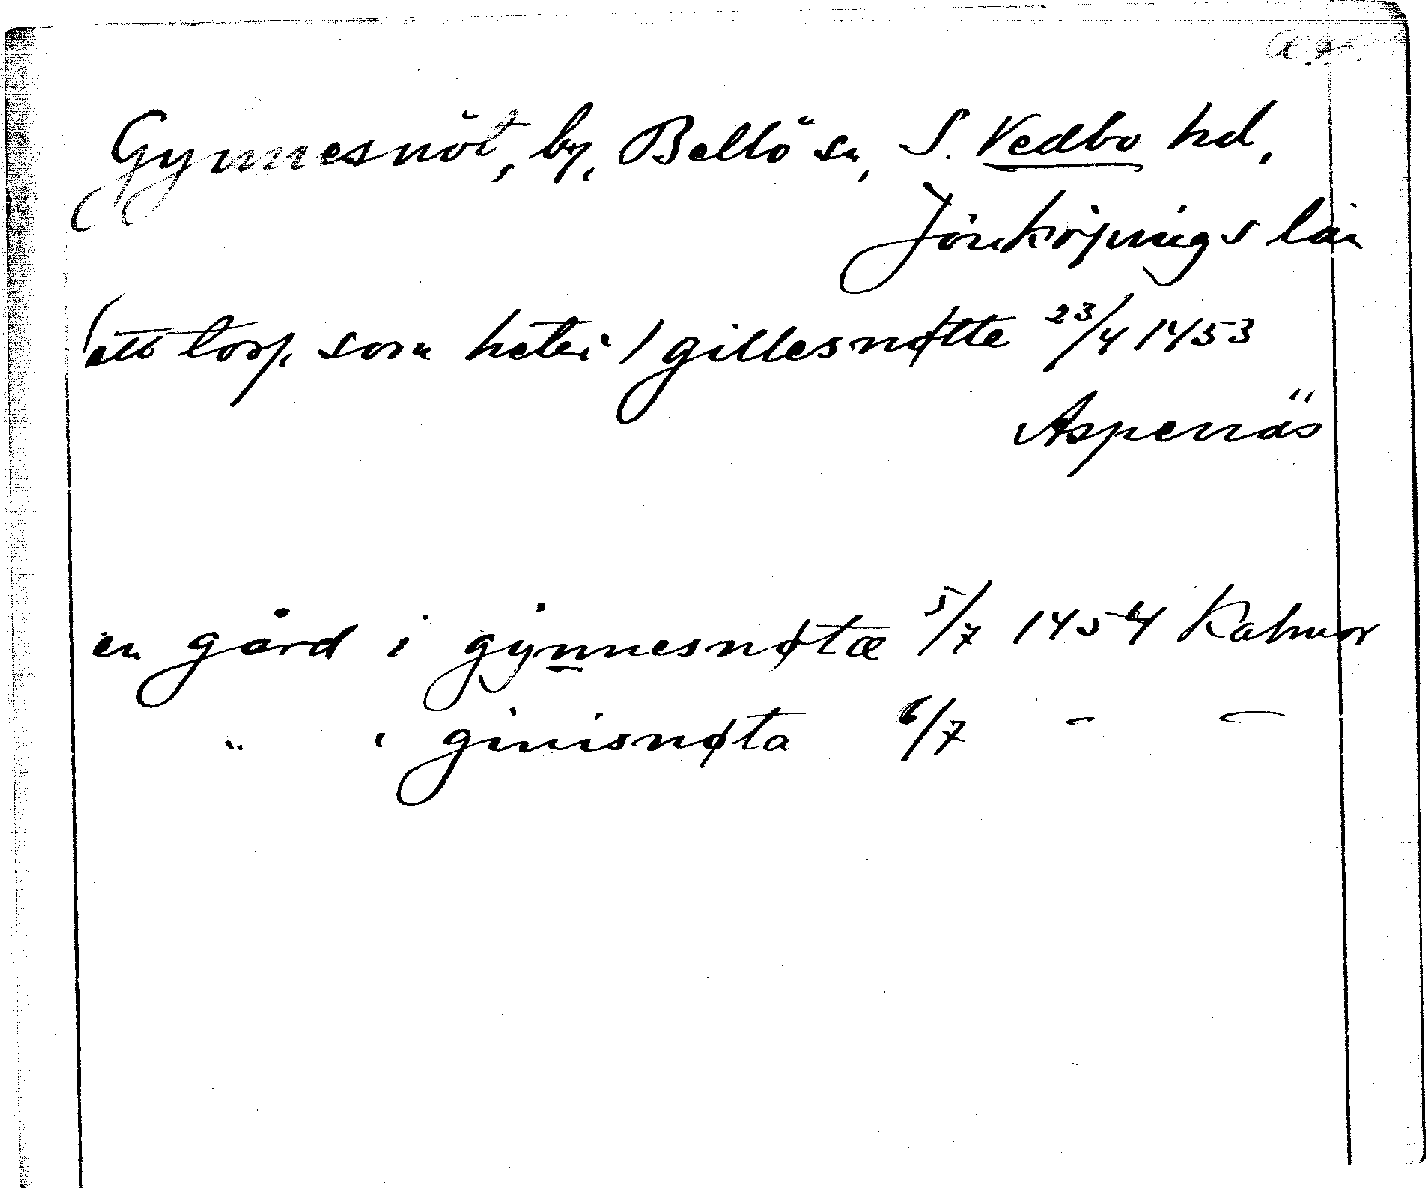 Gynnesnöt, by, Bellö sn, S. Vedbo hd,
Jönköpings län
(ett torp som heter) gillesnøtte 23/4 1453
Aspenäs
en gård i gynnesnøtæ 5/7 1454 Kalmar
" i ginisnøta 6/7 - -